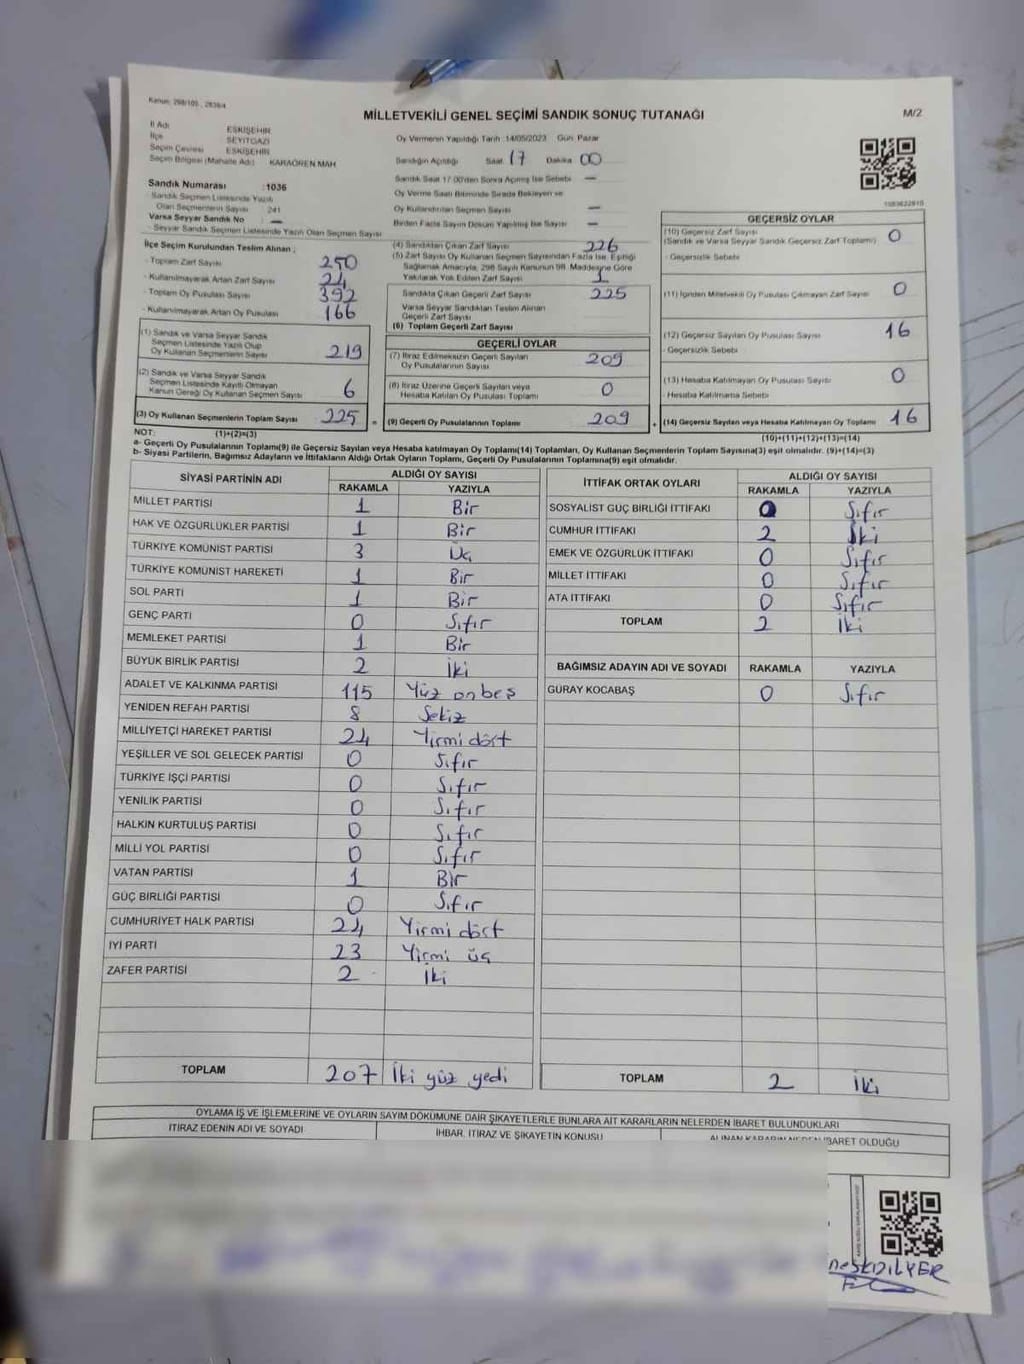 Kanun: 298/105 , 2839/4
MİLLETVEKİLİ GENEL SEÇİMİ SANDIK SONUÇ TUTANAĞI
M/2
İl Adı ESKİŞEHİR
İlçe SEYİTGAZİ
Seçim Çevresi ESKİŞEHİR
Seçim Bölgesi (Mahalle Adı) KARAÖREN MAH
Oy Vermenin Yapıldığı Tarih 14/05/2023 Gün Pazar
Sandığın Açıldığı Saat 17 Dakika 00
Sandık Saat 17.00'den Sonra Açılmış İse Sebebi —
Oy Verme Saati Bitiminde Sırada Bekleyen ve
Oy Kullandırılan Seçmen Sayısı —
Birden Fazla Sayım Döküm Yapılmış İse Sayısı —
Sandık Numarası :1036
- Sandık Seçmen Listesinde Yazılı
Olan Seçmenlerin Sayısı 241
Varsa Seyyar Sandık No —
- Seyyar Sandık Seçmen Listesinde Yazılı Olan Seçmen Sayısı
İlçe Seçim Kurulundan Teslim Alınan ;
- Toplam Zarf Sayısı 250
- Kullanılmayarak Artan Zarf Sayısı 24
- Toplam Oy Pusulası Sayısı 392
- Kullanılmayarak Artan Oy Pusulası 166
(1) Sandık ve Varsa Seyyar Sandık
Seçmen Listesinde Yazılı Olup
Oy Kullanan Seçmenlerin Sayısı 219
(2) Sandık ve Varsa Seyyar Sandık
Seçmen Listesinde Kayıtlı Olmayan
Kanun Gereği Oy Kullanan Seçmen Sayısı 6
(3) Oy Kullanan Seçmenlerin Toplam Sayısı 225 =
(4) Sandıktan Çıkan Zarf Sayısı 226
(5) Zarf Sayısı Oy Kullanan Seçmen Sayısından Fazla İse, Eşitliği
Sağlamak Amacıyla, 298 Sayılı Kanunun 98. Maddesine Göre
Yakılarak Yok Edilen Zarf Sayısı 1
Sandıkta Çıkan Geçerli Zarf Sayısı 225
Varsa Seyyar Sandıktan Teslim Alınan
Geçerli Zarf Sayısı
(6) Toplam Geçerli Zarf Sayısı
GEÇERLİ OYLAR
(7) İtiraz Edilmeksizin Geçerli Sayılan
Oy Pusulalarının Sayısı 209
(8) İtiraz Üzerine Geçerli Sayılan veya
Hesaba Katılan Oy Pusulası Toplamı 0
(9) Geçerli Oy Pusulalarının Toplamı 209 +
1083622915
GEÇERSİZ OYLAR
(10) Geçersiz Zarf Sayısı 0
(Sandık ve Varsa Seyyar Sandık Geçersiz Zarf Toplamı)
- Geçersizlik Sebebi
(11) İçinden Milletvekili Oy Pusulası Çıkmayan Zarf Sayısı 0
(12) Geçersiz Sayılan Oy Pusulası Sayısı 16
- Geçersizlik Sebebi
(13) Hesaba Katılmayan Oy Pusulası Sayısı 0
- Hesaba Katılmama Sebebi
(14) Geçersiz Sayılan veya Hesaba Katılmayan Oy Toplamı 16
NOT: (1)+(2)=(3) (10)+(11)+(12)+(13)=(14)
a- Geçerli Oy Pusulalarının Toplamı(9) ile Geçersiz Sayılan veya Hesaba katılmayan Oy Toplamı(14) Toplamları, Oy Kullanan Seçmenlerin Toplam Sayısına(3) eşit olmalıdır. (9)+(14)=(3)
b- Siyasi Partilerin, Bağımsız Adayların ve İttifakların Aldığı Ortak Oyların Toplamı, Geçerli Oy Pusulalarının Toplamına(9) eşit olmalıdır.
SİYASİ PARTİNİN ADI ALDIĞI OY SAYISI
RAKAMLA YAZIYLA
MİLLET PARTİSİ 1 Bir
HAK VE ÖZGÜRLÜKLER PARTİSİ 1 Bir
TÜRKİYE KOMÜNİST PARTİSİ 3 Üç
TÜRKİYE KOMÜNİST HAREKETİ 1 Bir
SOL PARTİ 1 Bir
GENÇ PARTİ 0 Sıfır
MEMLEKET PARTİSİ 1 Bir
BÜYÜK BİRLİK PARTİSİ 2 İki
ADALET VE KALKINMA PARTİSİ 115 Yüz onbeş
YENİDEN REFAH PARTİSİ 8 Sekiz
MİLLİYETÇİ HAREKET PARTİSİ 24 Yirmi dört
YEŞİLLER VE SOL GELECEK PARTİSİ 0 Sıfır
TÜRKİYE İŞÇİ PARTİSİ 0 Sıfır
YENİLİK PARTİSİ 0 Sıfır
HALKIN KURTULUŞ PARTİSİ 0 Sıfır
MİLLİ YOL PARTİSİ 0 Sıfır
VATAN PARTİSİ 1 Bir
GÜÇ BİRLİĞİ PARTİSİ 0 Sıfır
CUMHURİYET HALK PARTİSİ 24 Yirmi dört
İYİ PARTİ 23 Yirmi üç
ZAFER PARTİSİ 2 İki
TOPLAM 207 İki yüz yedi
İTTİFAK ORTAK OYLARI ALDIĞI OY SAYISI
RAKAMLA YAZIYLA
SOSYALİST GÜÇ BİRLİĞİ İTTİFAKI 0 Sıfır
CUMHUR İTTİFAKI 2 İki
EMEK VE ÖZGÜRLÜK İTTİFAKI 0 Sıfır
MİLLET İTTİFAKI 0 Sıfır
ATA İTTİFAKI 0 Sıfır
TOPLAM 2 İki
BAĞIMSIZ ADAYIN ADI VE SOYADI RAKAMLA YAZIYLA
GÜRAY KOCABAŞ 0 Sıfır
TOPLAM 2 İki
OYLAMA İŞ VE İŞLEMLERİNE VE OYLARIN SAYIM DÖKÜMÜNE DAİR ŞİKAYETLERLE BUNLARA AİT KARARLARIN NELERDEN İBARET BULUNDUKLARI
İTİRAZ EDENİN ADI VE SOYADI İHBAR, İTİRAZ VE ŞİKAYETİN KONUSU ALINAN KARARIN NEDEN İBARET OLDUĞU